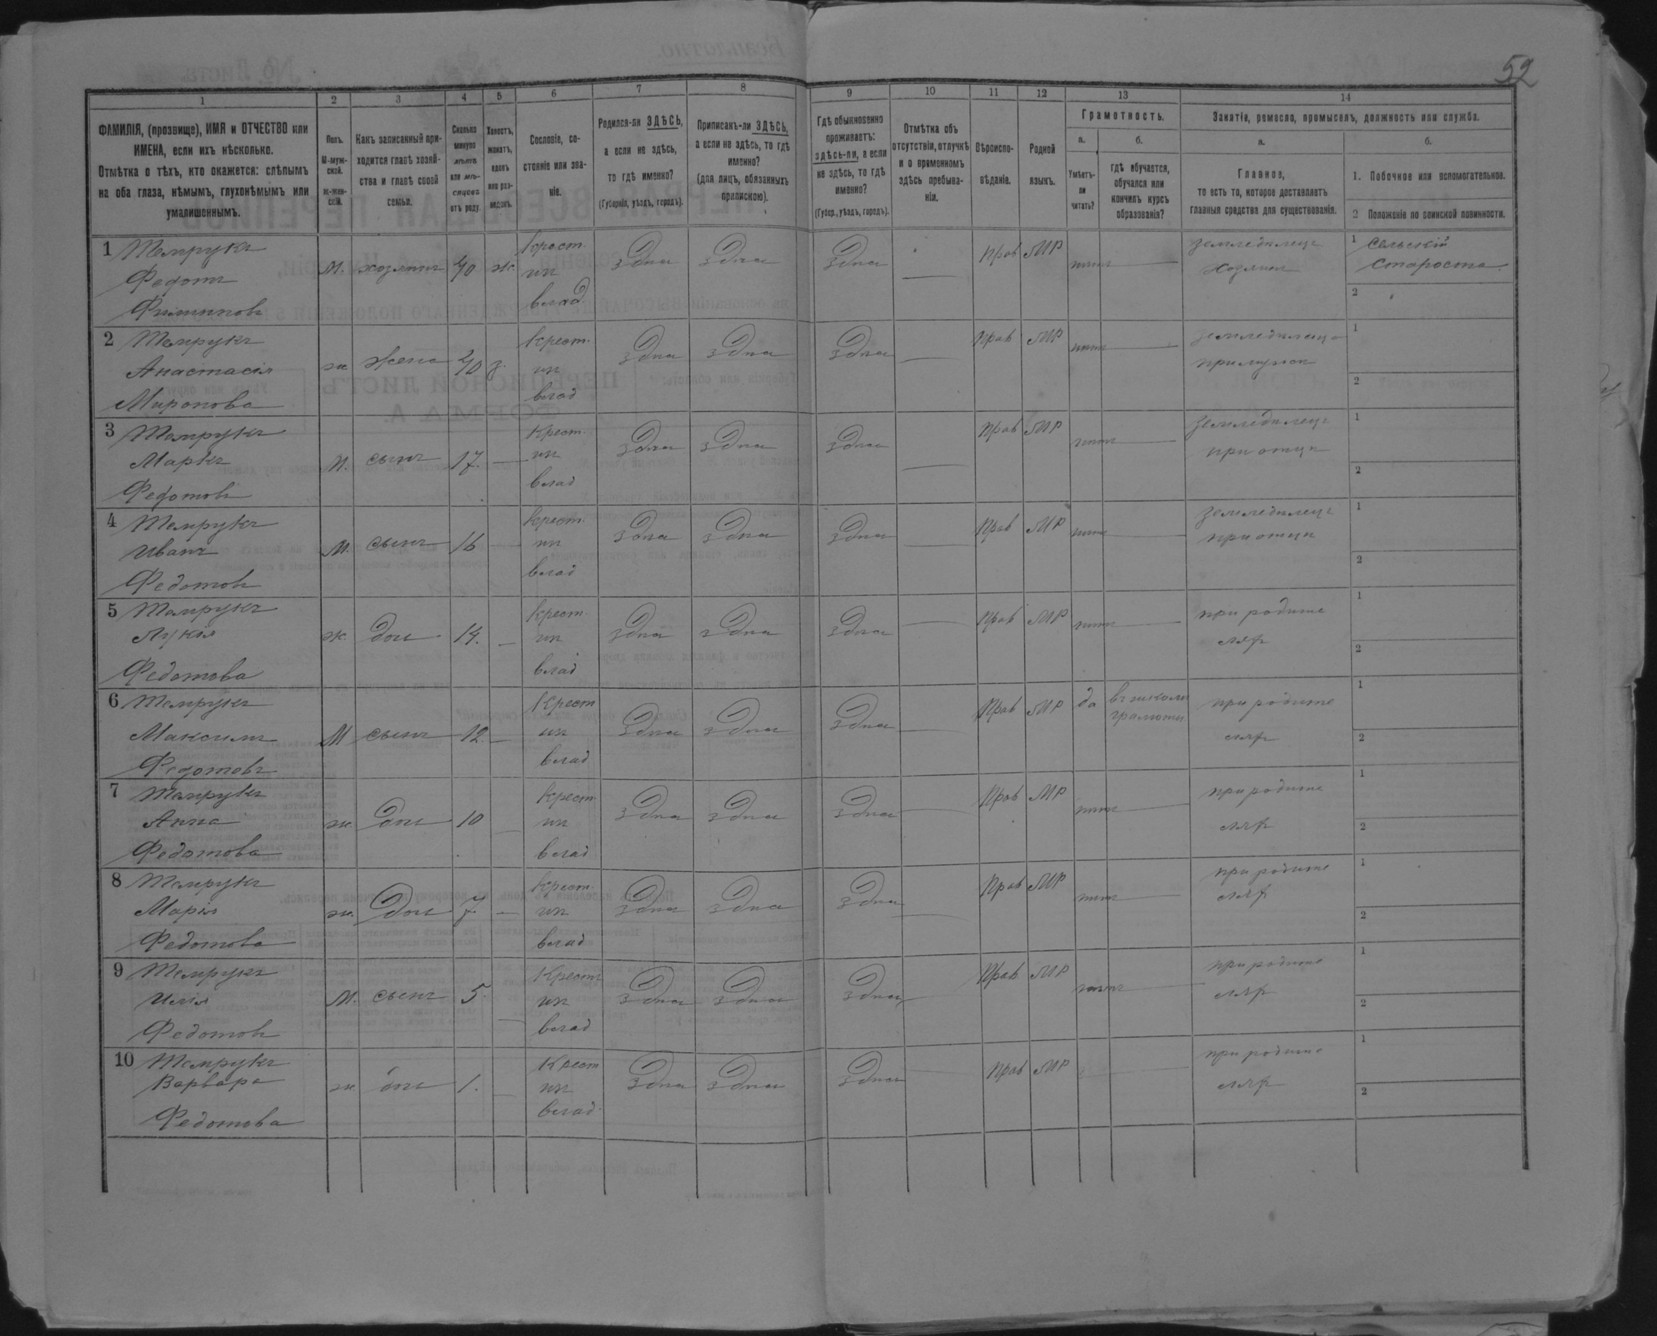 52
1 2 3 4 5 6 7 8 9 10 11 12 13 14
ФАМИЛІЯ, (прозвище), ИМЯ и ОТЧЕСТВО или
ИМЕНА, если ихъ нѣсколько.
Отмѣтка о тѣхъ, кто окажется: слѣпымъ
на оба глаза, нѣмымъ, глухонѣмымъ или
умалишеннымъ.
Полъ.
М-муж-
ской.
Ж-жен-
скій.
Какъ записанный при-
ходится главѣ хозяй-
ства и главѣ своей
семьи.
Сколько
минуло
лѣтъ
или мѣ-
сяцевъ
отъ роду.
Холостъ,
женатъ,
вдовъ
или раз-
веденъ.
Сословіе, со-
стояніе или зва-
ніе.
Родился-ли ЗДѢСЬ,
а если не здѣсь,
то гдѣ именно?
(Губернія, уѣздъ, городъ).
Приписанъ-ли ЗДѢСЬ,
а если не здѣсь, то гдѣ
именно?
(для лицъ, обязанныхъ
припискою).
Гдѣ обыкновенно
проживаетъ:
здѣсь-ли, а если
не здѣсь, то гдѣ
именно?
(Губер., уѣздъ, городъ).
Отмѣтка объ
отсутствіи, отлучкѣ
и о временномъ
здѣсь пребыва-
ніи.
Вѣроиспо-
вѣданіе.
Родной
языкъ.
Грамотность.
а.
Умѣетъ-
ли
читать?
б.
гдѣ обучается,
обучался или
кончилъ курсъ
образованія?
Занятіе, ремесло, промыселъ, должность или служба.
а.
Главное,
то есть то, которое доставляетъ
главныя средства для существованія.
б.
1. Побочное или вспомогательное.
2 Положеніе по воинской повинности.
1 Темрукъ
Федотъ
Филиповъ
м. хозяинъ 40 ж.
крест.
ип
влад
здѣсь здѣсь здѣсь
Прав МР нѣтъ
земледѣлецъ
хозяинъ
1 Сельскій
Староста
2
2 Темрукъ
Анастасія
Миронова
ж. жена 40 з.
Крест.
ип
влад
здѣсь здѣсь здѣсь
Прав МР нѣтъ
при мужѣ
1
2
3 Темрукъ
Маркъ
Федотовъ
м. сынъ 17.
Крест.
ип
влад
здѣсь здѣсь здѣсь
Прав МР нѣтъ
земледѣлецъ
при отцѣ
1
2
4 Темрукъ
Иванъ
Федотовъ
м. сынъ 16
Крест.
ип
влад
здѣсь здѣсь здѣсь
Прав МР нѣтъ
земледѣлецъ
при отцѣ
1
2
5 Темрукъ
Лукія
Федотова
ж. доч 14.
Крест.
ип
влад
здѣсь здѣсь здѣсь
Прав МР нѣтъ
при родите
ляхъ
1
2
6 Темрукъ
Максимъ
Федотовъ
М сынъ 12
Крест
ип
влад
здѣсь здѣсь здѣсь
Прав МР да
въ школѣ
грамоти
при родите
ляхъ
1
2
7 Темрукъ
Анна
Федотова
ж. доч 10
Крест
ип
влад
здѣсь здѣсь здѣсь
Прав МР нѣтъ
при родите
ляхъ
1
2
8 Темрукъ
Марія
Федотова
ж. доч 7.
Крест.
ип
влад
здѣсь здѣсь здѣсь
Прав МР нѣтъ
при родите
ляхъ
1
2
9 Темрукъ
Илія
Федотовъ
М. сынъ 5.
Крест
ип
влад
здѣсь здѣсь здѣсь
Прав МР нѣтъ
при родите
ляхъ
1
2
10 Темрукъ
Варвара
Федотова
ж доч 1.
Крест
ип
влад.
здѣсь здѣсь здѣсь
Прав МР
при родите
ляхъ
1
2